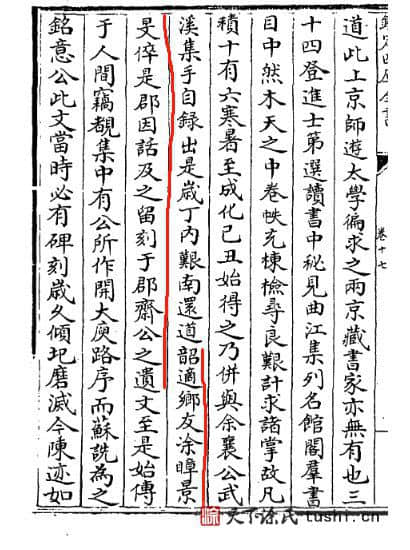 欽定四庫全書
卷十七
道此上京師遊太學徧求之兩京藏書家亦無有也三
十四登進士第選讀書中秘見曲江集列名館閣羣書
目中然木天之中卷帙充棟檢尋良艱計求諸掌故凡
積十有六寒暑至成化己丑始得之乃併與余襄公武
溪集手自録出是嵗丁内艱南還道韶適鄉友涂暲景
旻倅是郡因話及之留刻于郡齋公之遺文至是始傳
于人間竊覩集中有公所作開大庾路序而蘇詵為之
銘意公此文當時必有碑刻嵗久傾圯磨滅今陳迹如
涂 天下涂氏 tushi.cn